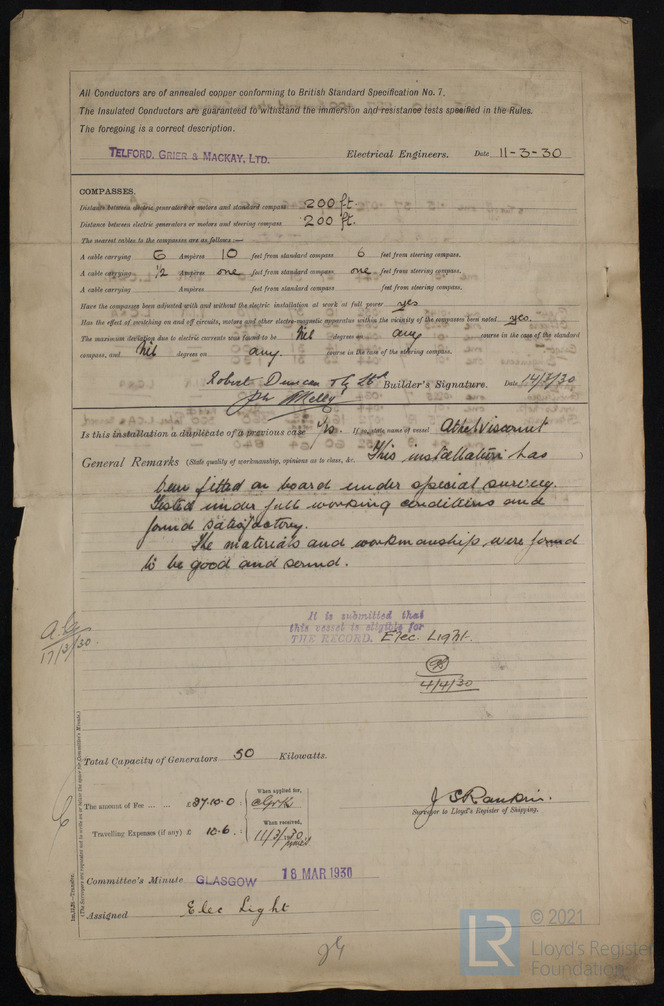 All Conductors are of annealed copper conforming to British Standard Specification No. 7.
The Insulated Conductors are guaranteed to withstand the immersion and resistance tests specified in the Rules.
The foregoing is a correct description.
TELFORD, GRIER & MACKAY, LTD. Electrical Engineers. Date 11-3-30
COMPASSES.
Distance between electric generators or motors and standard compass 200 ft.
Distance between electric generators or motors and steering compass 200 ft.
The nearest cables to the compasses are as follows:—
A cable carrying 6 Ampères 10 feet from standard compass 6 feet from steering compass.
A cable carrying ½ Ampères one feet from standard compass one feet from steering compass.
A cable carrying Ampères feet from standard compass feet from steering compass.
Have the compasses been adjusted with and without the electric installation at work at full power yes
Has the effect of switching on and off circuits, motors and other electro-magnetic apparatus within the vicinity of the compasses been noted yes.
The maximum deviation due to electric currents was found to be Nil degrees on any course in the case of the standard
compass, and Nil degrees on any. course in the case of the steering compass.
Robert Duncan Ltd Builder's Signature. Date 14/3/30
Is this installation a duplicate of a previous case If so, state name of vessel Athelviscount
General Remarks (State quality of workmanship, opinions as to class, &c. This installation has
been fitted on board under special survey.
Tested under full working conditions and
found satisfactory.
The materials and workmanship were found
to be good and sound.
17/3/30
It is submitted that
this vessel is eligible for
THE RECORD. Elec. Light.
4/4/30
Total Capacity of Generators 50 Kilowatts.
The amount of Fee ... ... £37.10.0 When applied for,
Travelling Expenses (if any) £ 10.6. When received, 11/3/30
J S Rankin.
Surveyor to Lloyd's Register of Shipping.
Committee's Minute GLASGOW 18 MAR 1930
Assigned Elec Light
© 2021
LR
Lloyd's Register
Foundation